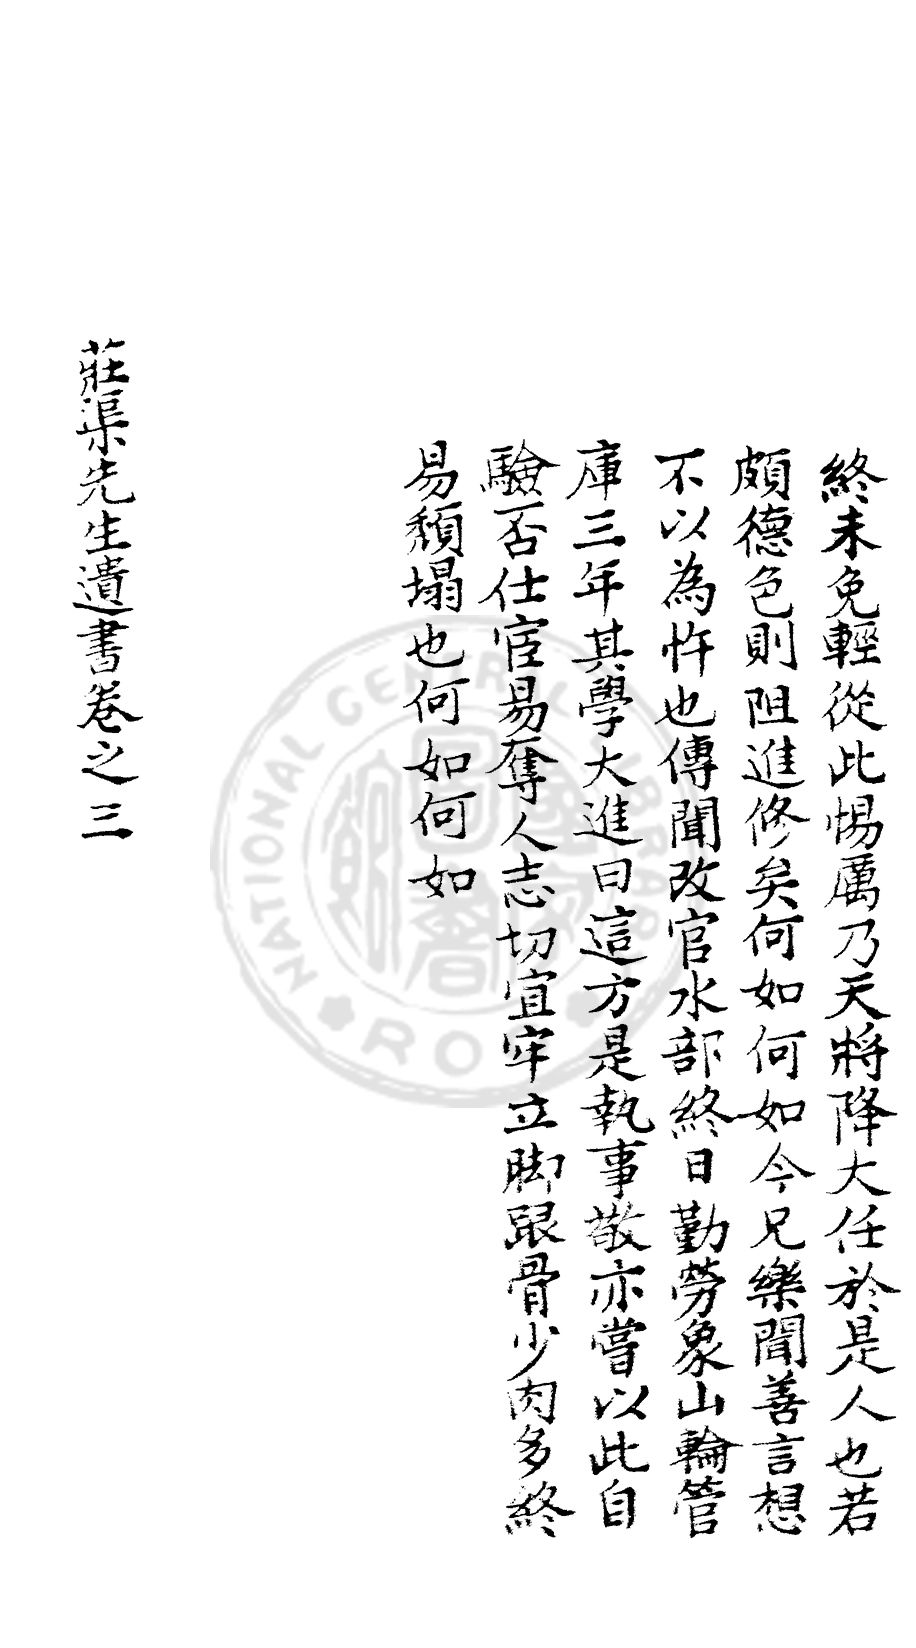 終未免輕從此惕厲乃天將降大任於是人也若
頗德色則阻進修矣何如何如今兄樂聞善言想
不以為忤也傳聞改官水部終日勤勞象山輪管
庫三年其學大進曰這方是執事敬亦嘗以此自
驗否仕宦易奪人志切宜牢立脚跟骨少肉多終
易頹塌也何如何如
莊渠先生遺書卷之三
NATIONAL CENTRAL LIBRARY
ROC
國家圖書館